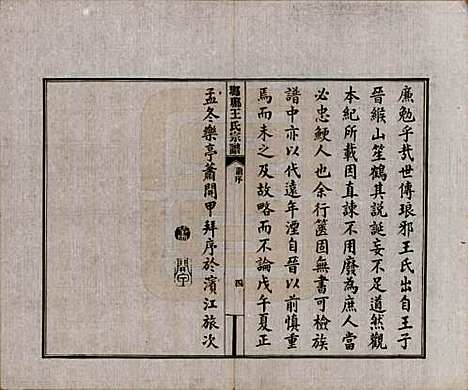 廉勉乎哉世傳琅邪王氏出自王子
晉緱山笙鶴其說誕妄不足道然觀
本紀所載因直諫不用廢為庶人當
必忠鯁人也余行篋固無書可檢族
譜中亦以代遠年湮自晉以前慎重
焉而未之及故略而不論戊午夏正
瑯琊王氏宗譜
序
四
孟冬樂亭蕭開甲拜序於濱江旅次